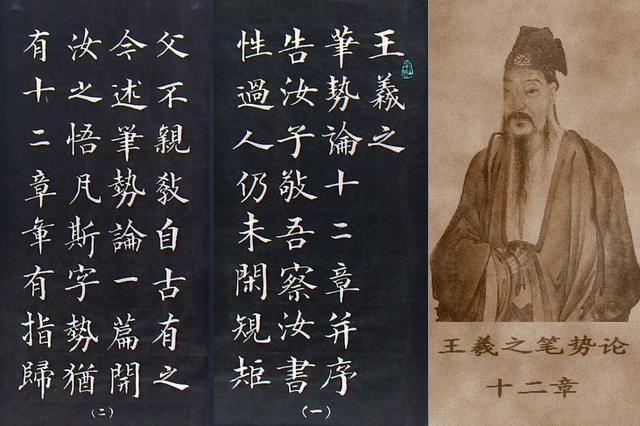 王羲之
筆勢論十二章并序
告汝子敬吾察汝書
性過人仍未閑規矩
(一)
父不親教自古有之
今述筆勢論一篇開
汝之悟凡斯字勢猶
有十二章章有指歸
(二)
王羲之笔势论
十二章